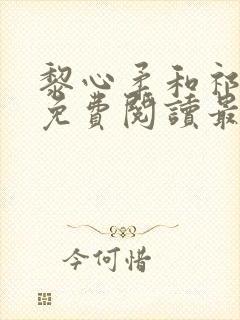 黎心柔和祁
免費閱讀最
今何惜